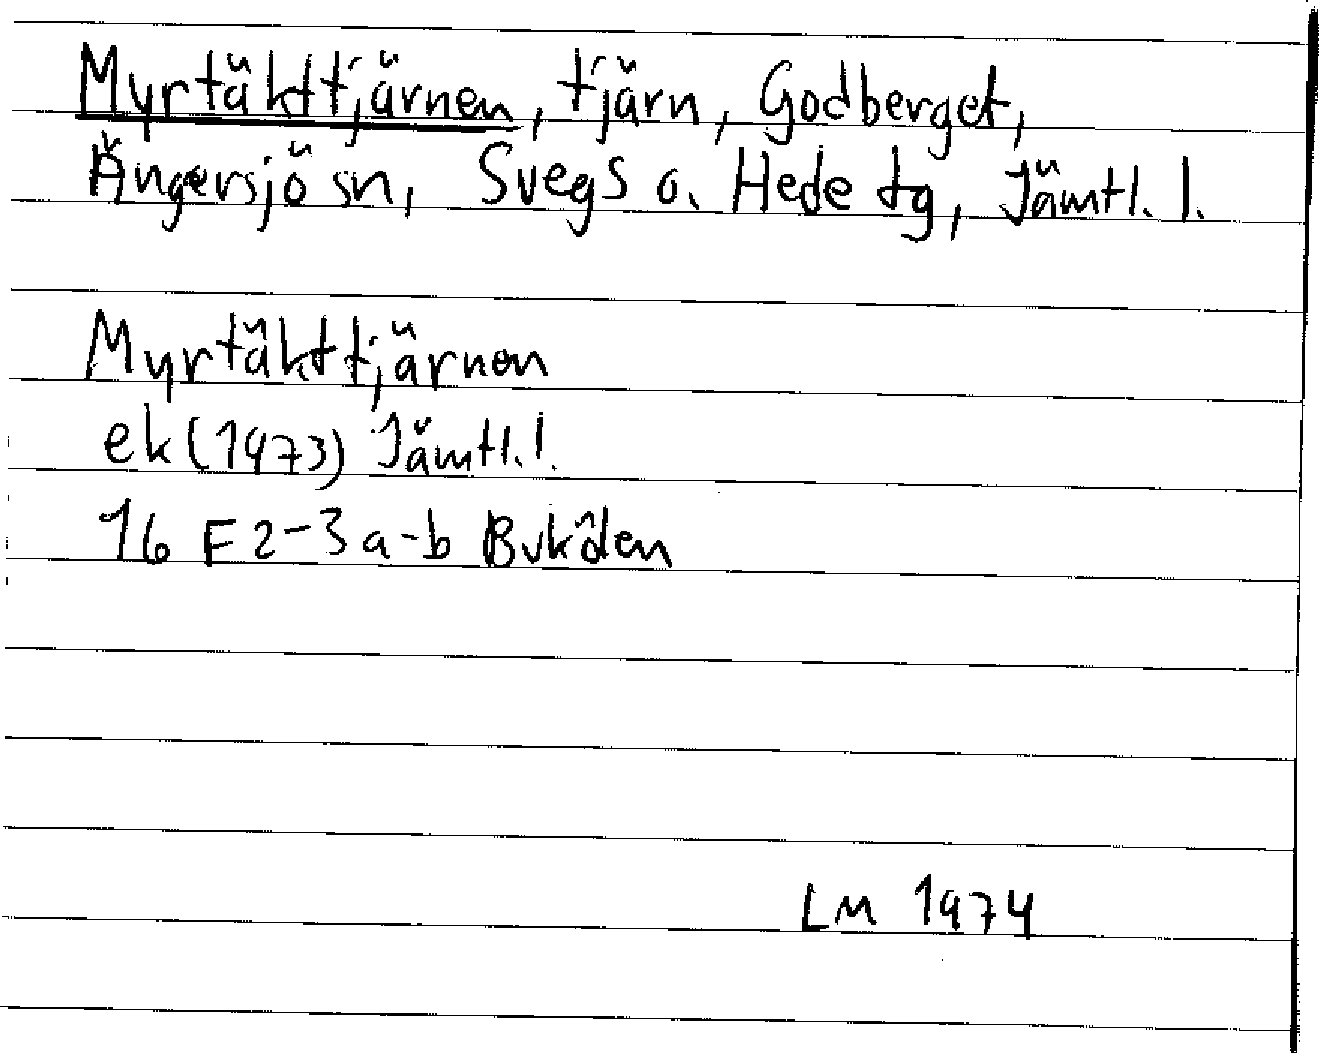 Myrtäkttjärnen, tjärn, Godberget,
Ängersjö sn, Svegs o. Hede tg, Jämtl. l.
Myrtäkttjärnen
ek (1973) Jämtl. l.
16 F 2-3 a-b Bukölen
LM 1974